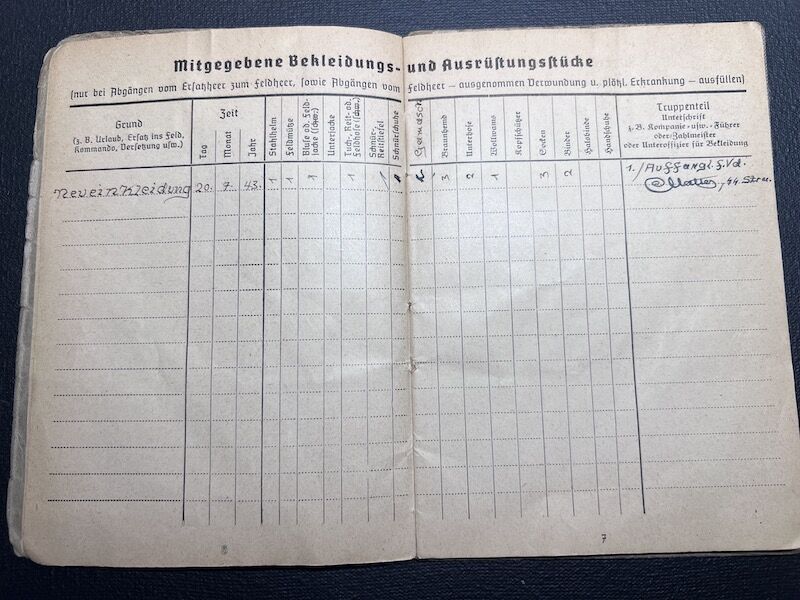 Mitgegebene Bekleidungs- und Ausrüstungsstücke
(nur bei Abgängen vom Ersatzheer zum Feldheer, sowie Abgängen vom Feldheer — ausgenommen Verwundung u. plötzl. Erkrankung — ausfüllen)
Grund
(z. B. Urlaub, Ersatz ins Feld,
Kommando, Versetzung usw.)
Zeit
Tag
Monat
Jahr
Stahlhelm
Feldmütze
Bluse od. Feld-
jacke (schw.)
Unterjacke
Tuch-, Reit- od.
Feldhose (schw.)
Schnür-,
Reitstiefel
Schnürschuhe
Gamasch
Braunhemd
Unterhose
Wollwams
Kopfschützer
Socken
Binder
Halsbinde
Handschuhe
Truppenteil
Unterschrift
z. B. Kompanie- usw. -Führer
oder Zahlmeister
oder Unteroffizier für Bekleidung
Neueinkleidung 20. 7. 43. 1 1 1 1 / 1 3 2 1 3 2 1./Auffangl. f. Vd.
6
7